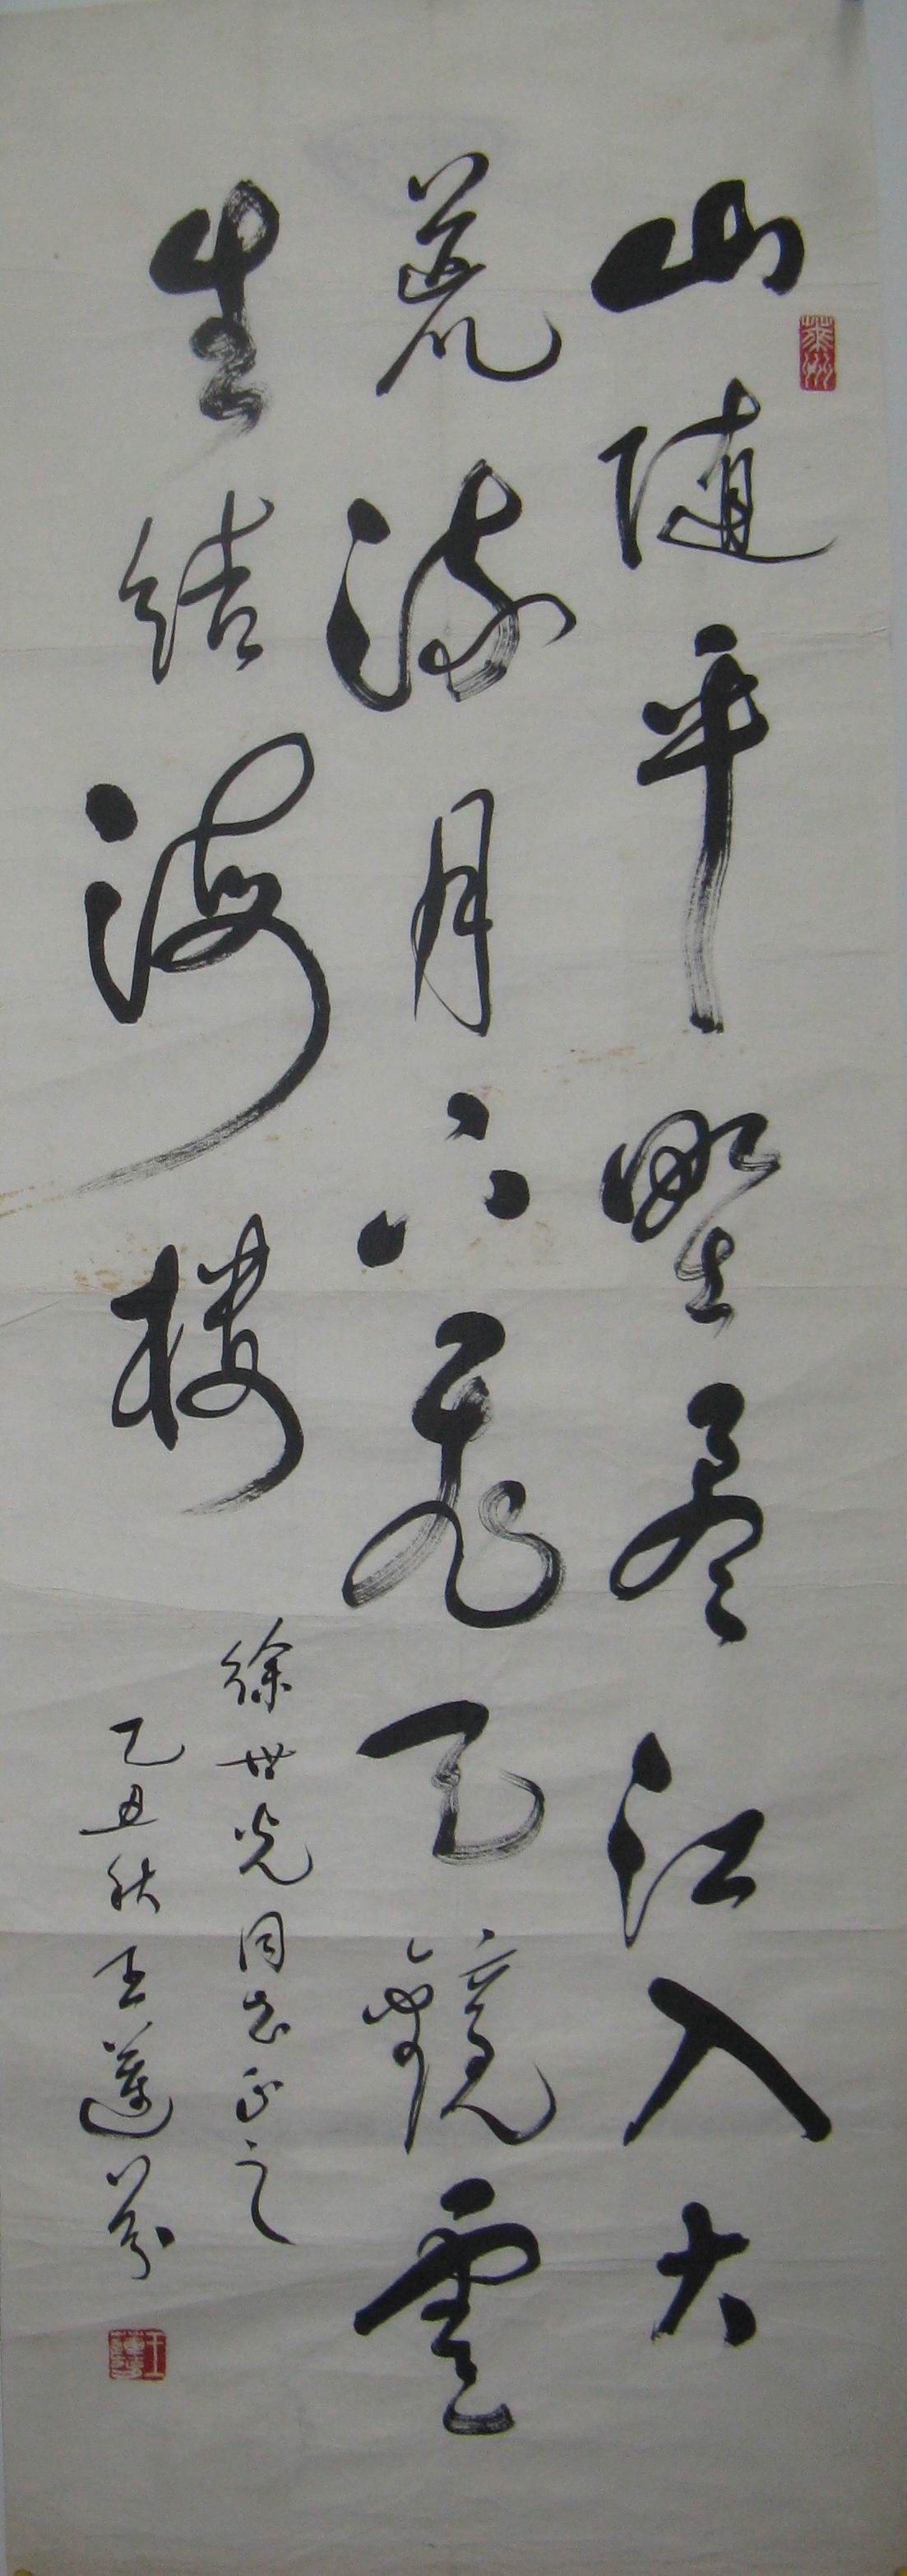 山随平野尽江入大
荒流月下飛天鏡雲
生结海楼
徐世光同志正之
乙丑秋王莲芬
莱州